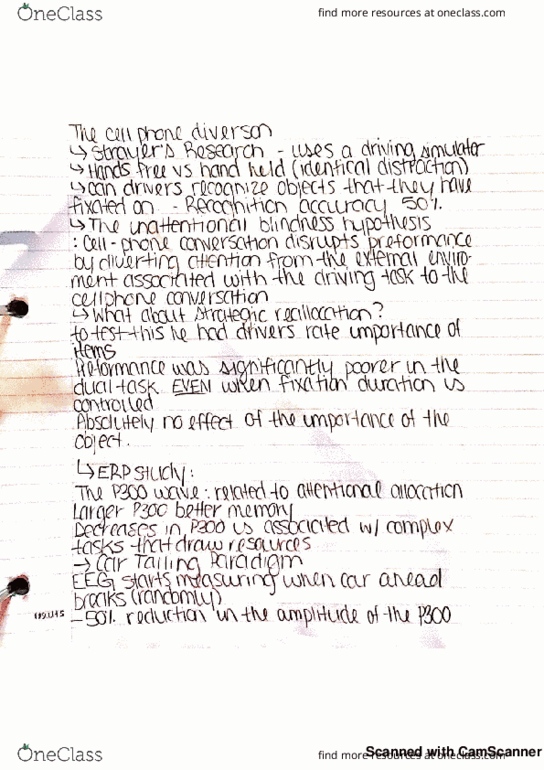 OneClass
find more resources at oneclass.com
The cell phone diverson
↳ Strayer's Research - uses a driving simulator
↳ Hands free vs hand held (identical distraction)
↳ can drivers recognize objects that they have
fixated on - Recognition accuracy 50%.
↳ The unattentional blindness hypothesis
: Cell-phone conversation disrupts preformance
by diverting attention from the external enviro-
ment associated with the driving task to the
cellphone conversation
↳ What about strategic reallocation?
to test this he had drivers rate importance of
items
Performance was significantly poorer in the
dual task EVEN when fixation duration is
controlled
Absolutely no effect of the importance of the
object.
↳ ERP study:
The P300 wave: related to attentional allocation
Larger P300 better memory
Decreases in P300 is associated w/ complex
tasks that draw resources
→ Car Tailing Paradigm
EEG starts measuring when car ahead
breaks (randomly)
- 50% reduction in the amplitude of the P300
OneClass
find more resources at oneclass.com
Scanned with CamScanner